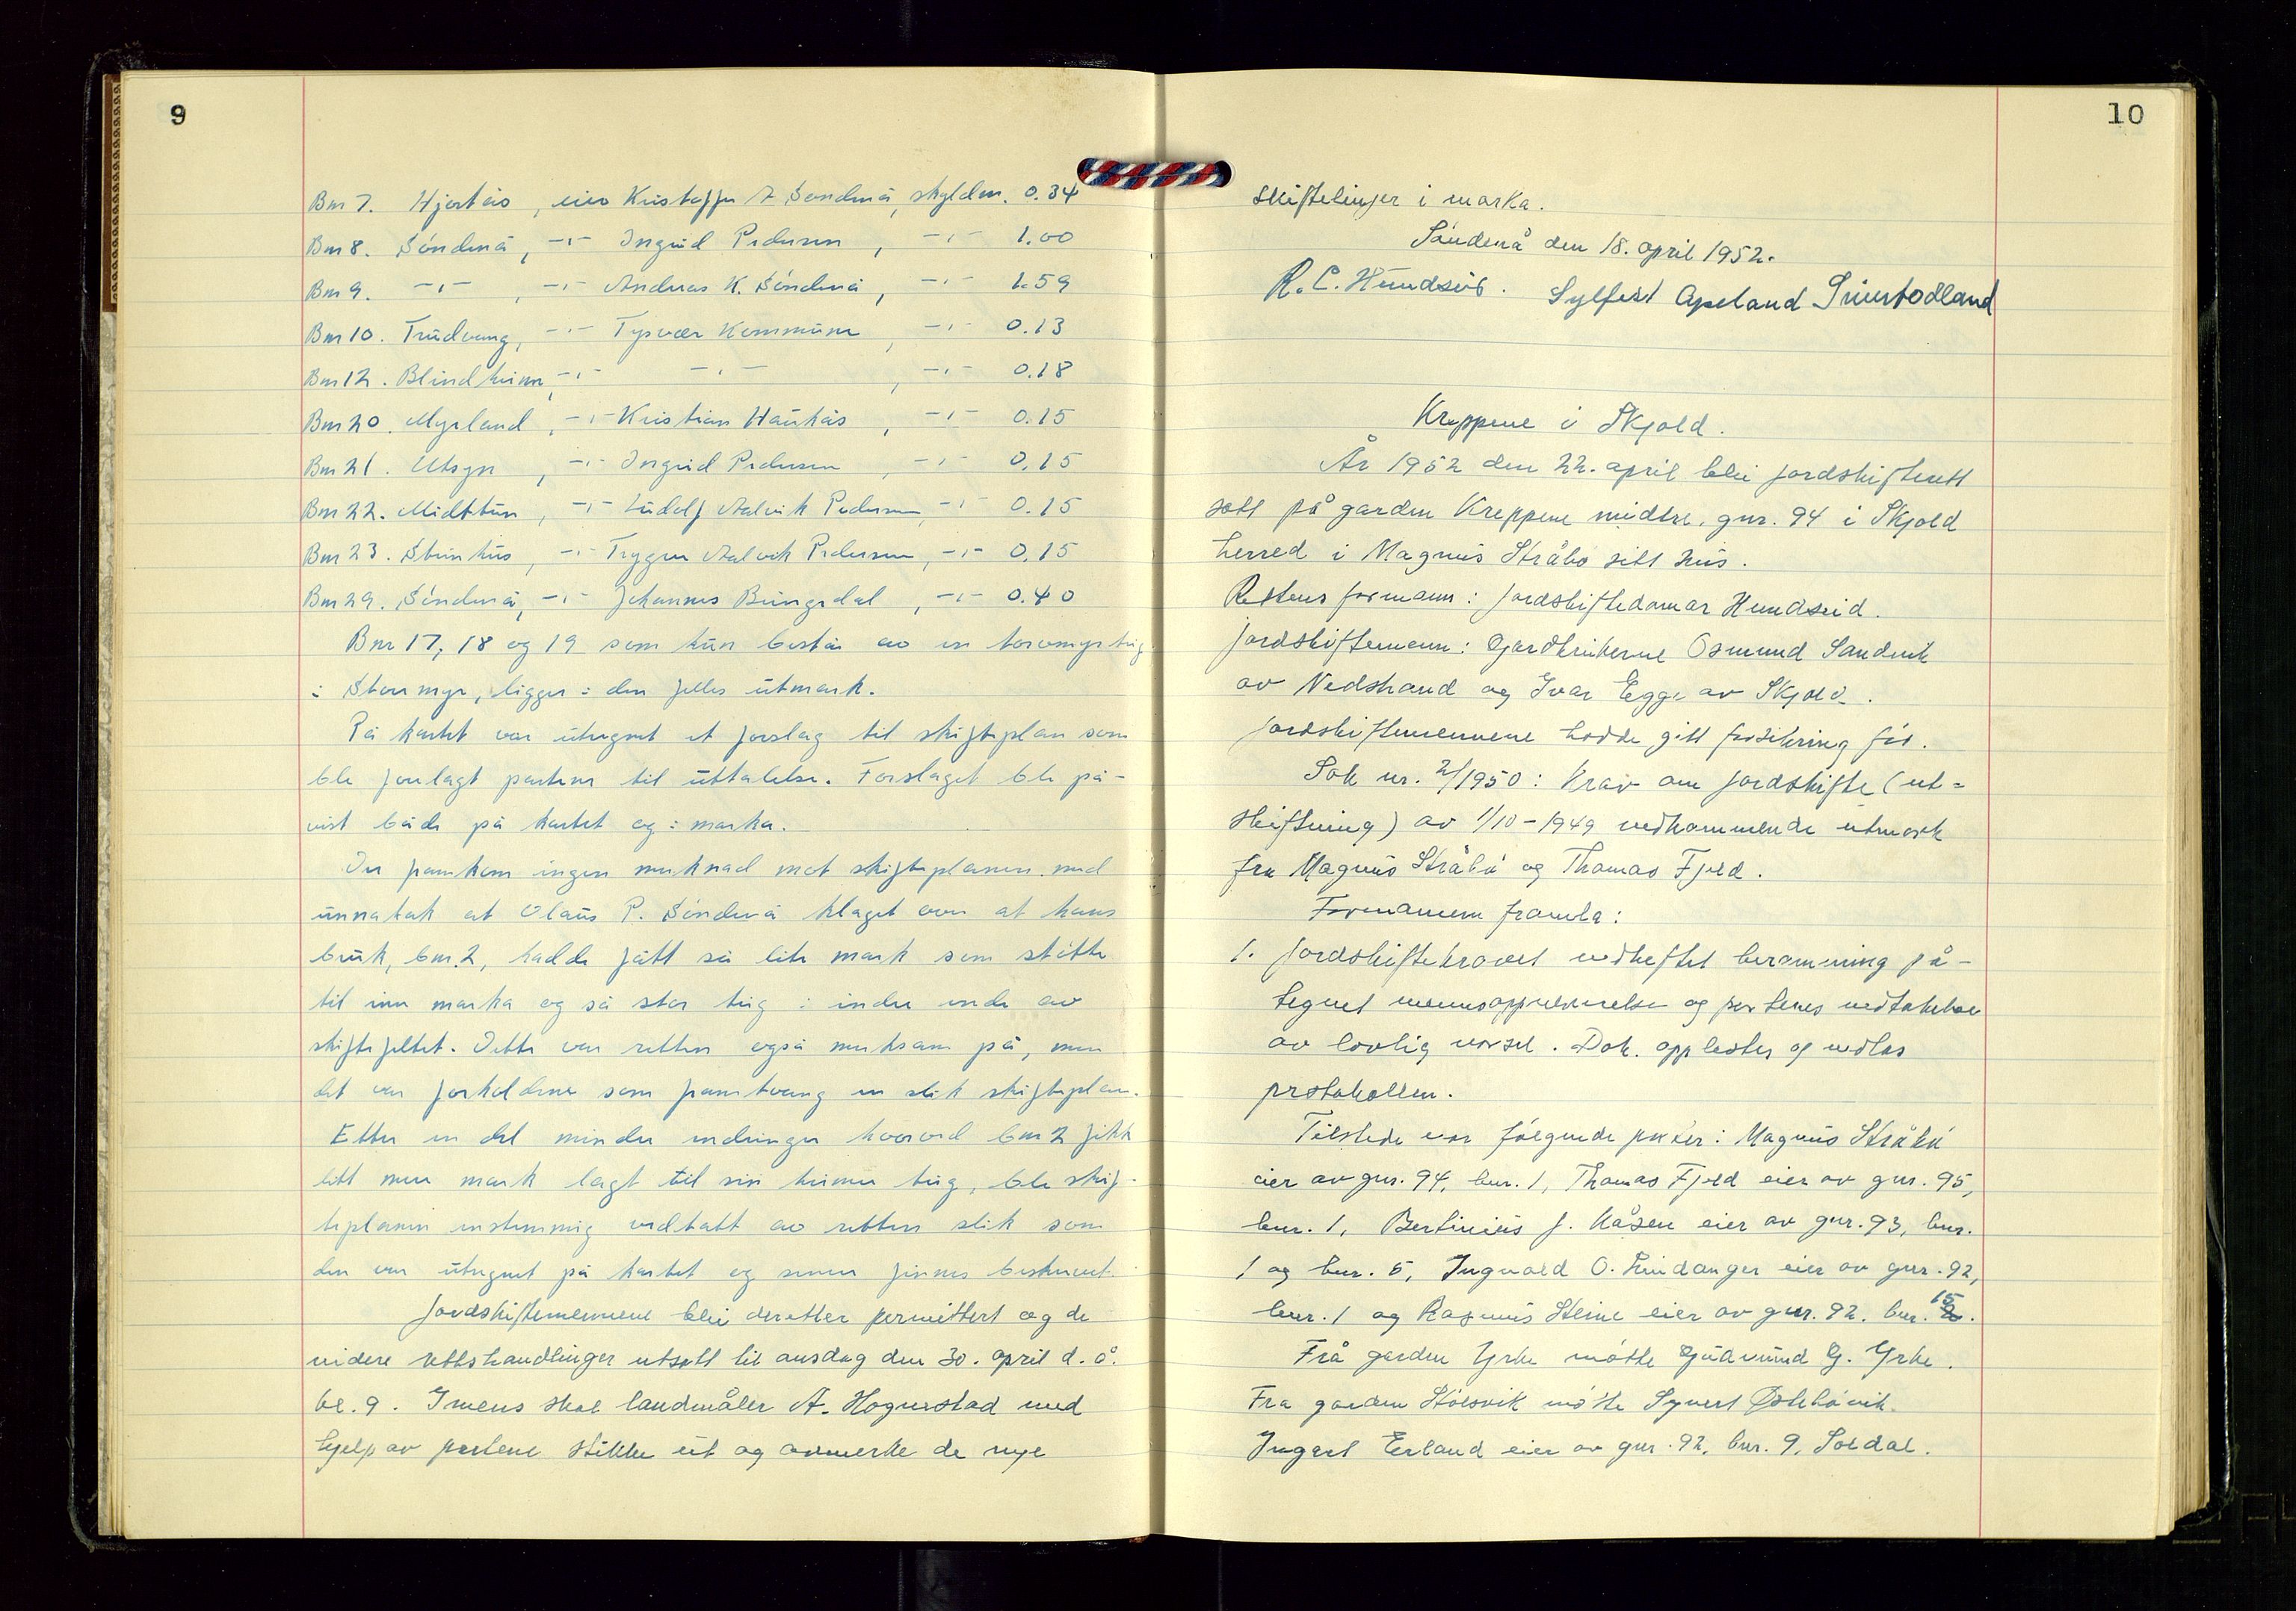 9
Bnr 7. Hjortås, eier Kristoffer A. Søndenå, skyldm. 0.34
Bnr 8. Søndenå, -"- Ingrid Pedersen, -"- 1.00
Bnr 9. -"-, -"- Andreas K. Søndenå, -"- 1.59
Bnr 10. Trudvang, -"- Tysvær Kommune, -"- 0.13
Bnr 12. Blindheim, -"- -"-, -"- 0.18
Bnr 20. Myrland, -"- Kristian Haukås, -"- 0.15
Bnr 21. Utsyn, -"- Ingrid Pedersen, -"- 0.15
Bnr 22. Midttun, -"- Ludolf Aalvik Pedersen, -"- 0.15
Bnr 23. Steinhus, -"- Trygve Aalvik Pedersen, -"- 0.15
Bnr 29. Søndenå, -"- Johannes Bungsdal, -"- 0.40
Bnr 17, 18 og 19 som kun består av en torvmyrteig
i Stormyr, ligger i den felles utmark.
På kartet var utregnet et forslag til skifteplan som
ble forelagt partene til uttalelse. Forslaget ble på-
vist både på kartet og i marka.
Det framkom ingen merknad mot skifteplanen med
unnatak at Olaus P. Søndenå klaget over at hans
bruk, bnr. 2, hadde fått så lite mark som støtte
til inn marka og så stor teig i indre ende av
skiftefeltet. Dette var retten også merksam på, men
det var forholdene som framtvang en slik skifteplan.
Etter en del mindre endringer hvorved bnr 2 fikk
litt mer mark lagt til sin heime teig, ble skif-
teplanen enstemmig vedtatt av retten slik som
den var utregnet på kartet og senere finnes beskrevet.
Jordskiftemennene blei deretter permittert og de
videre rettshandlinger utsatt til onsdag den 30. april d. å.
kl. 9. Imens skal landmåler A. Hognestad med
hjelp av partene stikke ut og avmerke de nye
10
skiftelinjer i marka.
Søndenå den 18. april 1952.
R. C. Hundseid. Sylfest Apeland
Kreppene i Skjold.
År 1952 den 22. april blei jordskifterett
satt på garden Kreppene midtre, gnr. 94 i Skjold
herred i Magnus Stråbø sitt hus.
Rettens formann: jordskiftedomar Hundseid.
Jordskiftemenn: Gardbrukerne Osmund Sandvik
av Nedstrand og Ivar Egge av Skjold.
Jordskiftemennene hadde gitt forsikring før.
Sak nr. 2/1950: Krav om jordskifte (ut=
skiftning) av 1/10-1949 vedkommende utmark
fra Magnus Stråbø og Thomas Fjeld.
Formannen framla:
1. Jordskiftekravet vedheftet beramming på-
tegnet mennsoppnevnelse og partenes vedtakelse
av lovlig varsel. Dok. opplestes og vedlas
protokollen.
Tilstede var følgende parter: Magnus Stråbø
eier av gnr. 94, bnr. 1, Thomas Fjeld eier av gnr. 95,
bnr. 1, Bertinius J. Kåsen eier av gnr. 93, bnr.
1 og bnr. 5, Ingvald O. Lindanger eier av gnr. 92,
bnr. 1 og Rasmus Steine eier av gnr. 92. bnr. 15.
Frå garden Yrke møtte Gudmund G. Yrke.
Fra garden Stølsvik møtte Syvert Østebøvik.
Ingart Erland eier av gnr. 92. bnr. 9, Soldal.